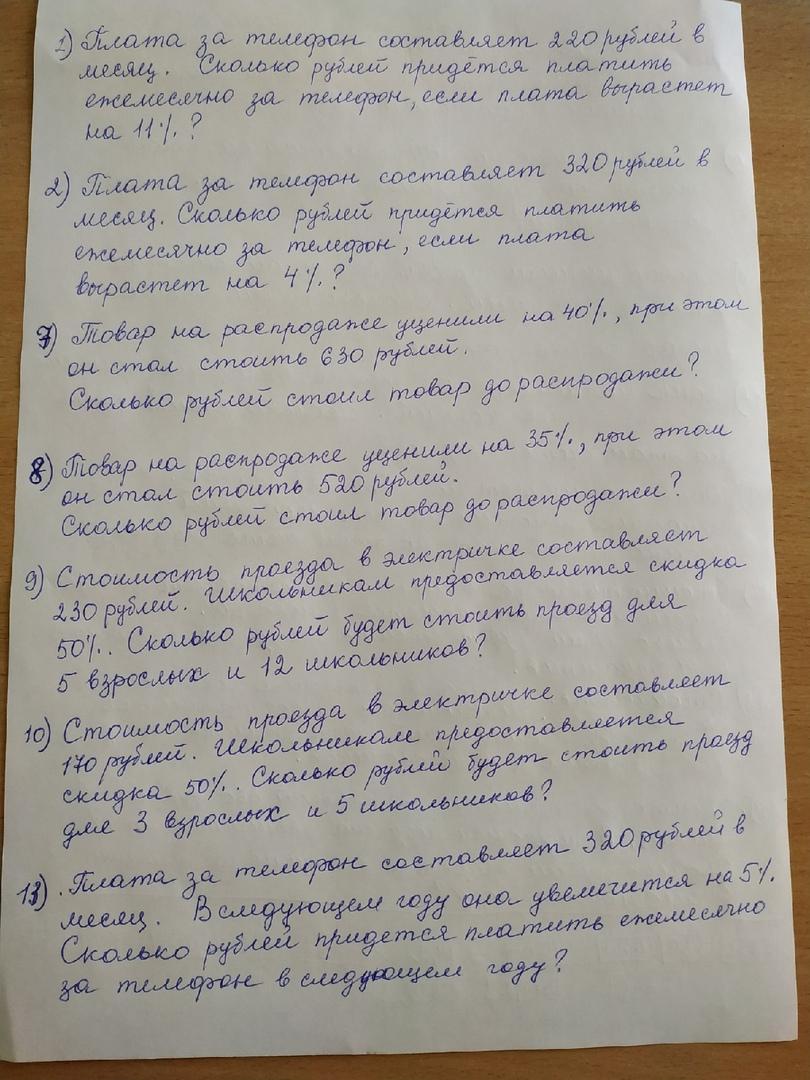 1) Плата за телефон составляет 220 рублей в
месяц. Сколько рублей придётся платить
ежемесячно за телефон, если плата вырастет
на 11%?
2) Плата за телефон составляет 320 рублей в
месяц. Сколько рублей придётся платить
ежемесячно за телефон, если плата
вырастет на 4%?
7) Товар на распродаже уценили на 40%, при этом
он стал стоить 630 рублей.
Сколько рублей стоил товар до распродажи?
8) Товар на распродаже уценили на 35%, при этом
он стал стоить 520 рублей.
Сколько рублей стоил товар до распродажи?
9) Стоимость проезда в электричке составляет
230 рублей. Школьникам предоставляется скидка
50%. Сколько рублей будет стоить проезд для
5 взрослых и 12 школьников?
10) Стоимость проезда в электричке составляет
170 рублей. Школьникам предоставляется
скидка 50%. Сколько рублей будет стоить проезд
для 3 взрослых и 5 школьников?
13). Плата за телефон составляет 320 рублей в
месяц. В следующем году она увеличится на 5%.
Сколько рублей придется платить ежемесячно
за телефон в следующем году?